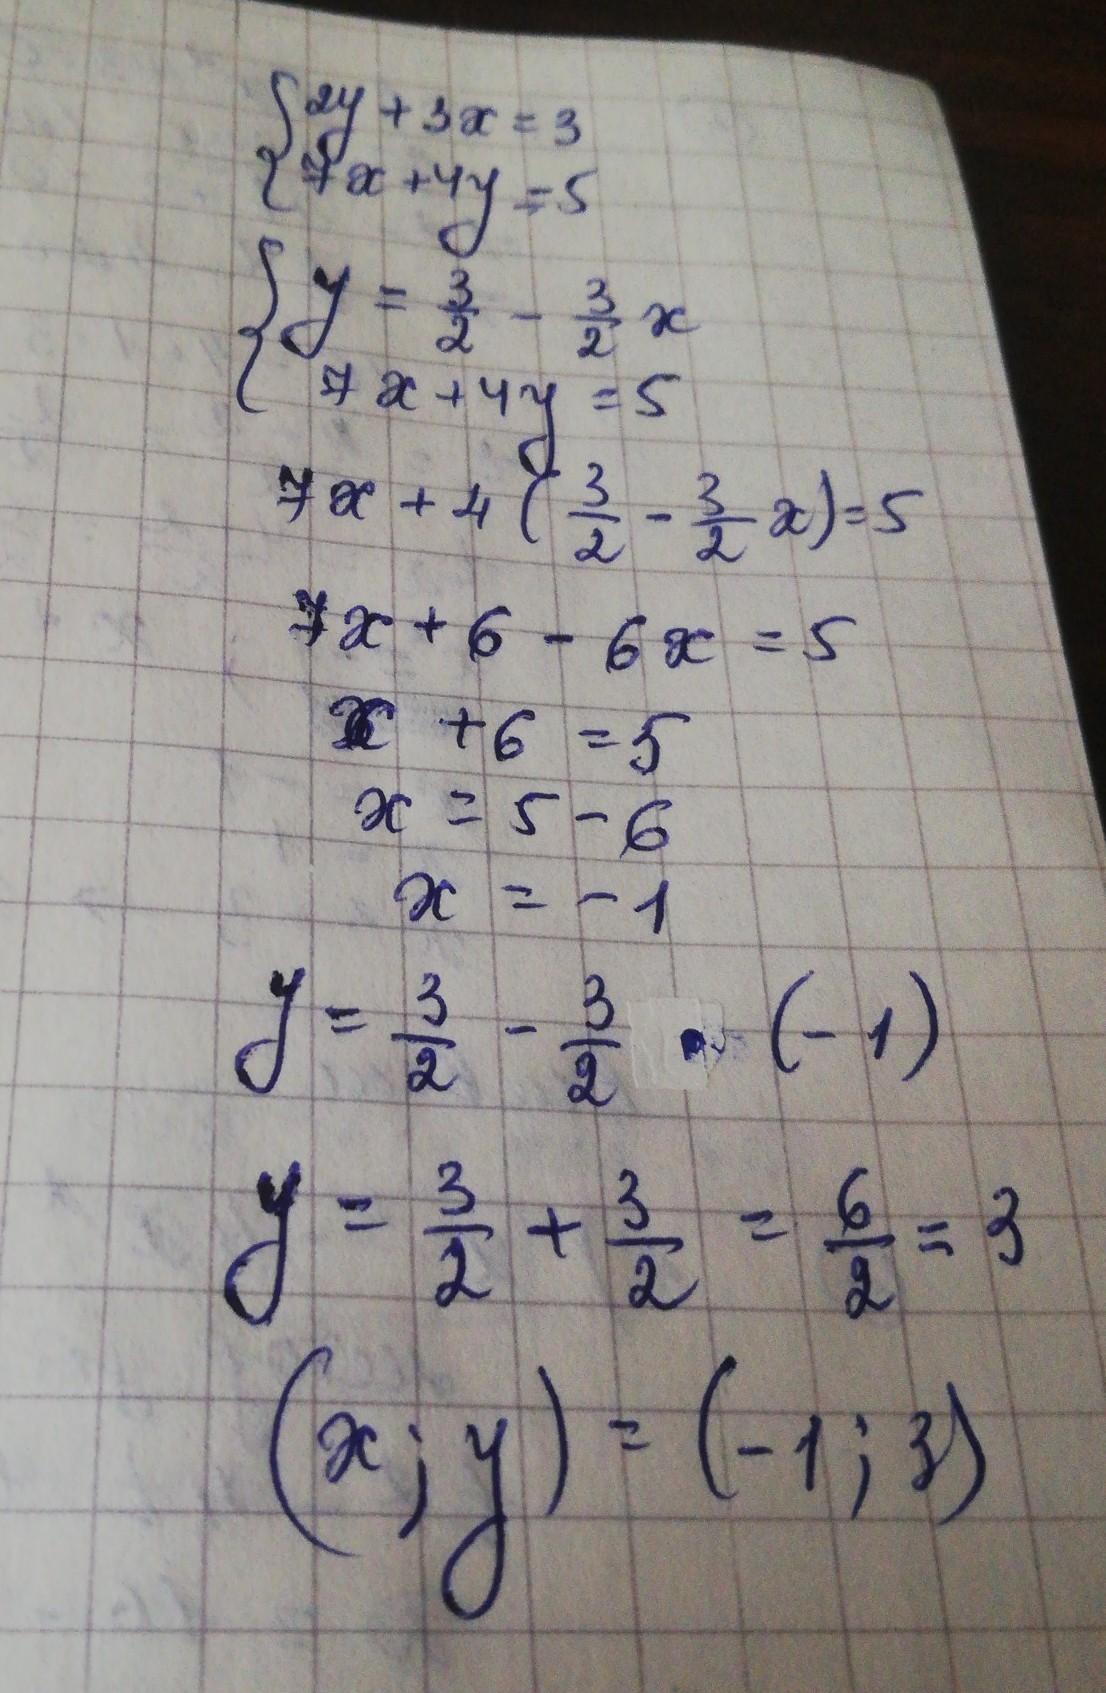 {2y + 3x = 3
{7x + 4y = 5
{y = 3/2 - 3/2 x
7x + 4y = 5
7x + 4 (3/2 - 3/2 x) = 5
7x + 6 - 6x = 5
x + 6 = 5
x = 5 - 6
x = -1
y = 3/2 - 3/2 · (-1)
y = 3/2 + 3/2 = 6/2 = 3
(x; y) = (-1; 3)